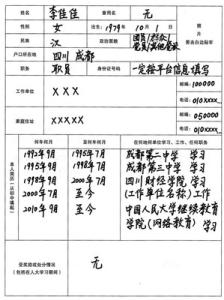 姓名 李佳佳 曾用名 无
性别 女 出生: 1979年10月1日 照片
民族 汉 政治面貌 团员/群众/党员/其他党派
户口所在地 四川 成都
职务 职员 身份证号码 一定按平台信息填写
工作单位 XXX 邮编: 100000
电话 010XXXX
家庭住址 XXXXX 邮编: 050000
电话 010XXXX
本人简历(从初中填起)
何年何月 至何年何月 在何地何单位学习、工作、任何职务
1992年9月 1995年7月 成都第二中学 学习
1995年9月 1998年7月 成都第三中学 学习
1996年9月 2000年7月 四川财经学院 学习
2000年7月 至今 (工作单位名称) 工作
2010年9月 至今 中国人民大学继续教育
学院(网络教育) 学习
受奖励或处分情况
(包括在人大学习期间)
无